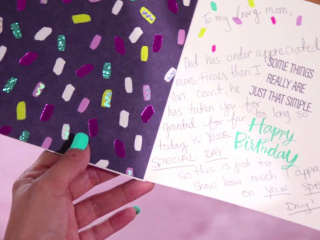 To my loving mom,
Dad has under appreciated
more times than I
can count, he
has taken you for
granted for far to long so
today is YOUR
SPECIAL DAY
so this is just to
show how much I appre
on YOUR SPECIAL
Day!
SOME THINGS
REALLY ARE
JUST THAT SIMPLE.
Happy
Birthday